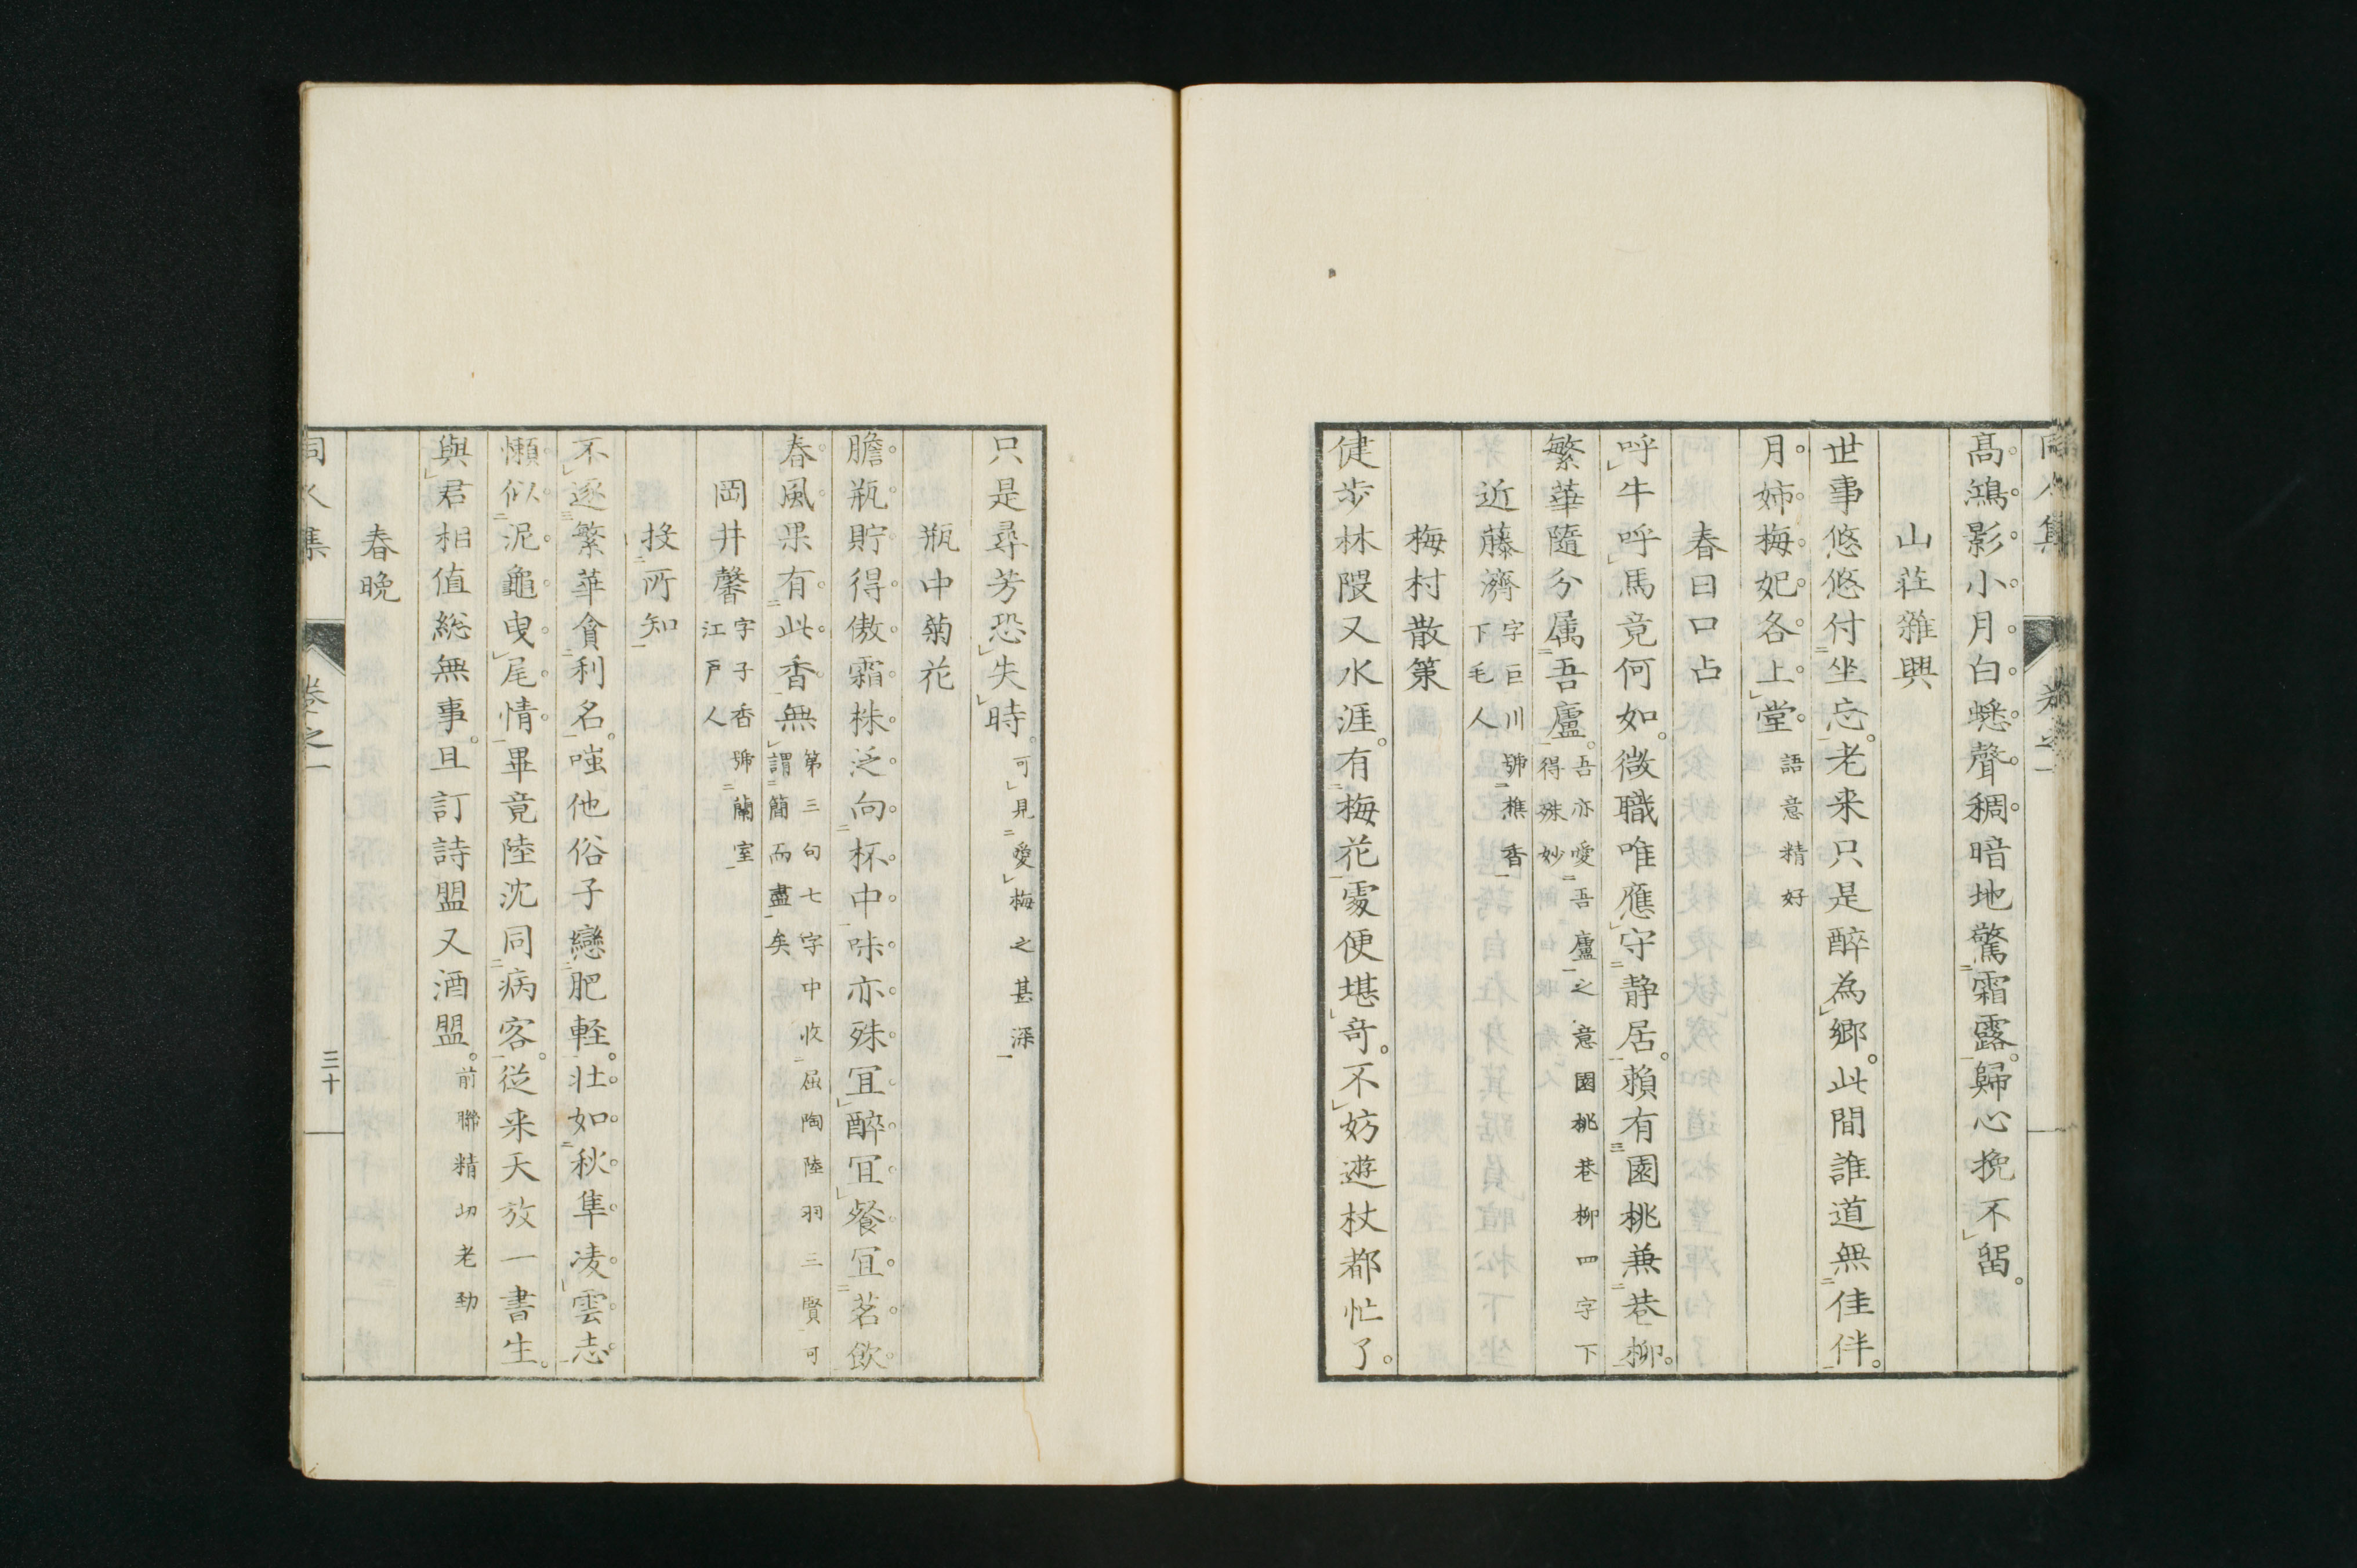 同人集 卷之一
高鴻影小月白蟋聲稠暗地驚霜露歸心挽不留。
山荘雜興
世事悠悠付坐忘。老来只是醉為郷。此間誰道無佳伴。
月姉梅妃各上堂。語意精好
春日口占
呼牛呼馬竟何如。微職唯應守静居。頼有園桃兼巷柳。
繁華隨分属吾廬。吾亦愛吾廬之意園桃巷柳四字下
得殊妙
近藤濟 字巨川號樵香
下毛人
梅村散策
健歩林隈又水涯。有梅花處便堪奇。不妨遊杖都忙了。
只是尋芳恐失時。可見愛梅之甚深
瓶中菊花
膽瓶貯得傲霜株泛向杯中味亦殊宜醉宜餐宜茗飲
春風果有此香無 第三句七字中收屈陶陸羽三賢可
謂簡而盡矣
岡井馨 字子香號蘭室
江戸人
投所知
不逐繁華貪利名。嗤他俗子戀肥軽。壮如秋隼凌雲志
懶似泥龜曳尾情畢竟陸沈同病客。従来天放一書生。
與君相値総無事。且訂詩盟又酒盟。前聯精切老勁
春晩
同人集 卷之一 三十